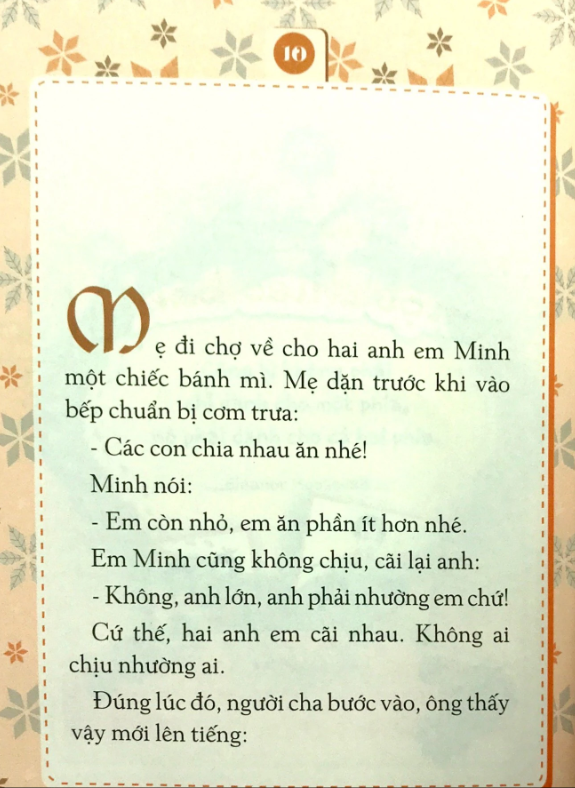 10
Mẹ đi chợ về cho hai anh em Minh
một chiếc bánh mì. Mẹ dặn trước khi vào
bếp chuẩn bị cơm trưa:
- Các con chia nhau ăn nhé!
Minh nói:
- Em còn nhỏ, em ăn phần ít hơn nhé.
Em Minh cũng không chịu, cãi lại anh:
- Không, anh lớn, anh phải nhường em chứ!
Cứ thế, hai anh em cãi nhau. Không ai
chịu nhường ai.
Đúng lúc đó, người cha bước vào, ông thấy
vậy mới lên tiếng: